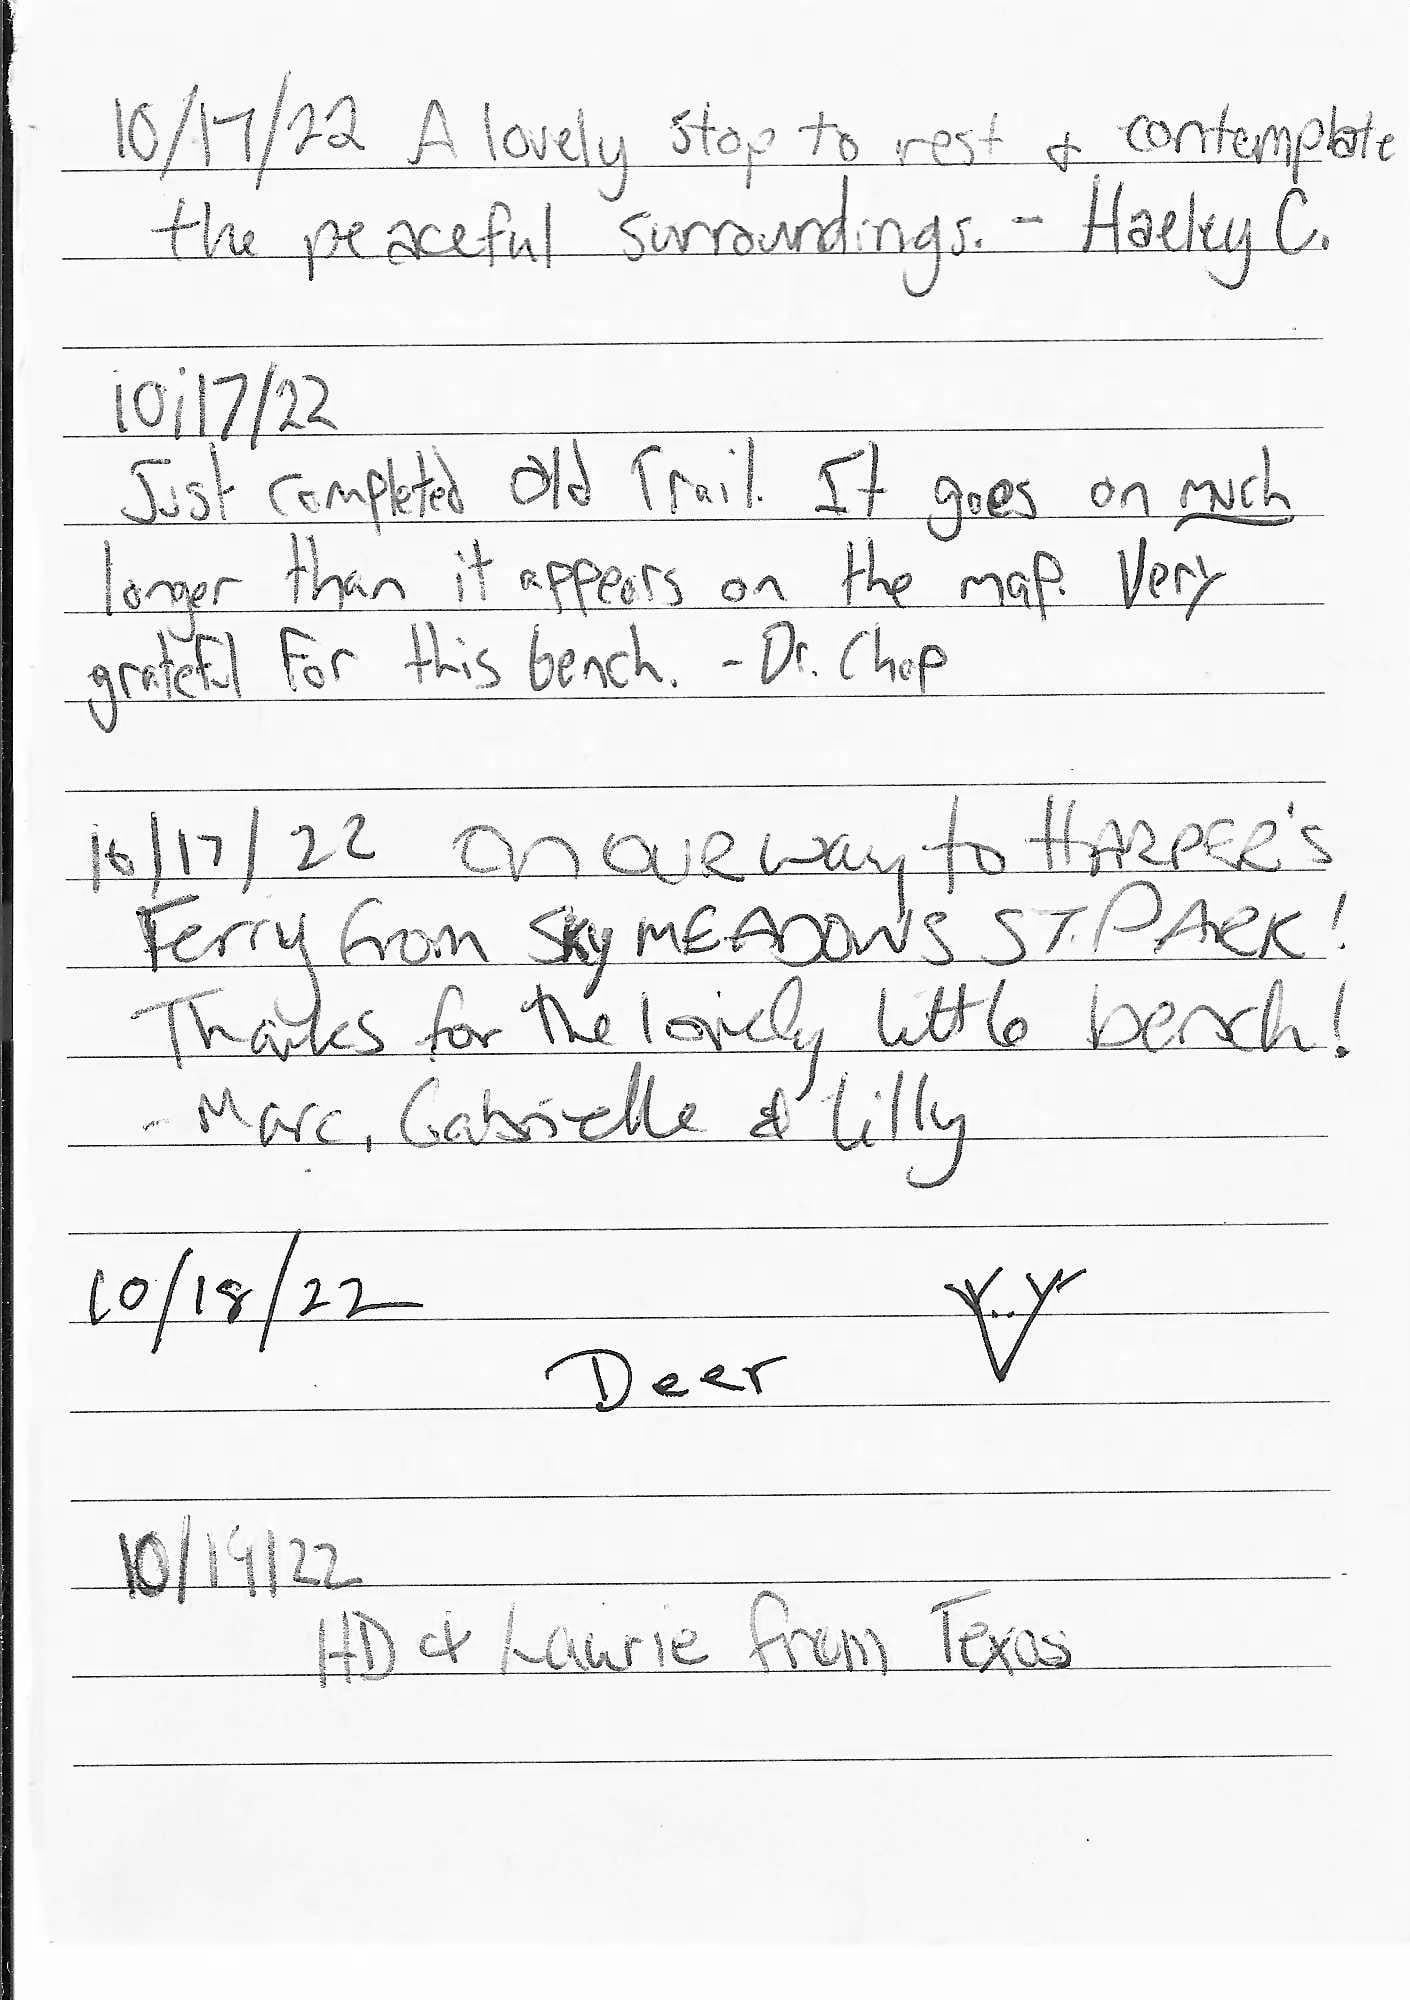 10/17/22 A lovely stop to rest & contemplate
the peaceful surroundings. - Haeley C.
10/17/22
Just completed Old Trail. It goes on much
longer than it appears on the map. Very
grateful For this bench. - Dr. Chop
10/17/22 On our way to HARPER'S
Ferry from Sky MEADOWS ST. PARK!
Thanks for the lovely little bench!
- Marc, Gabrielle & Lilly
10/18/22
Deer
10/19/22
HD & Laurie from Texas